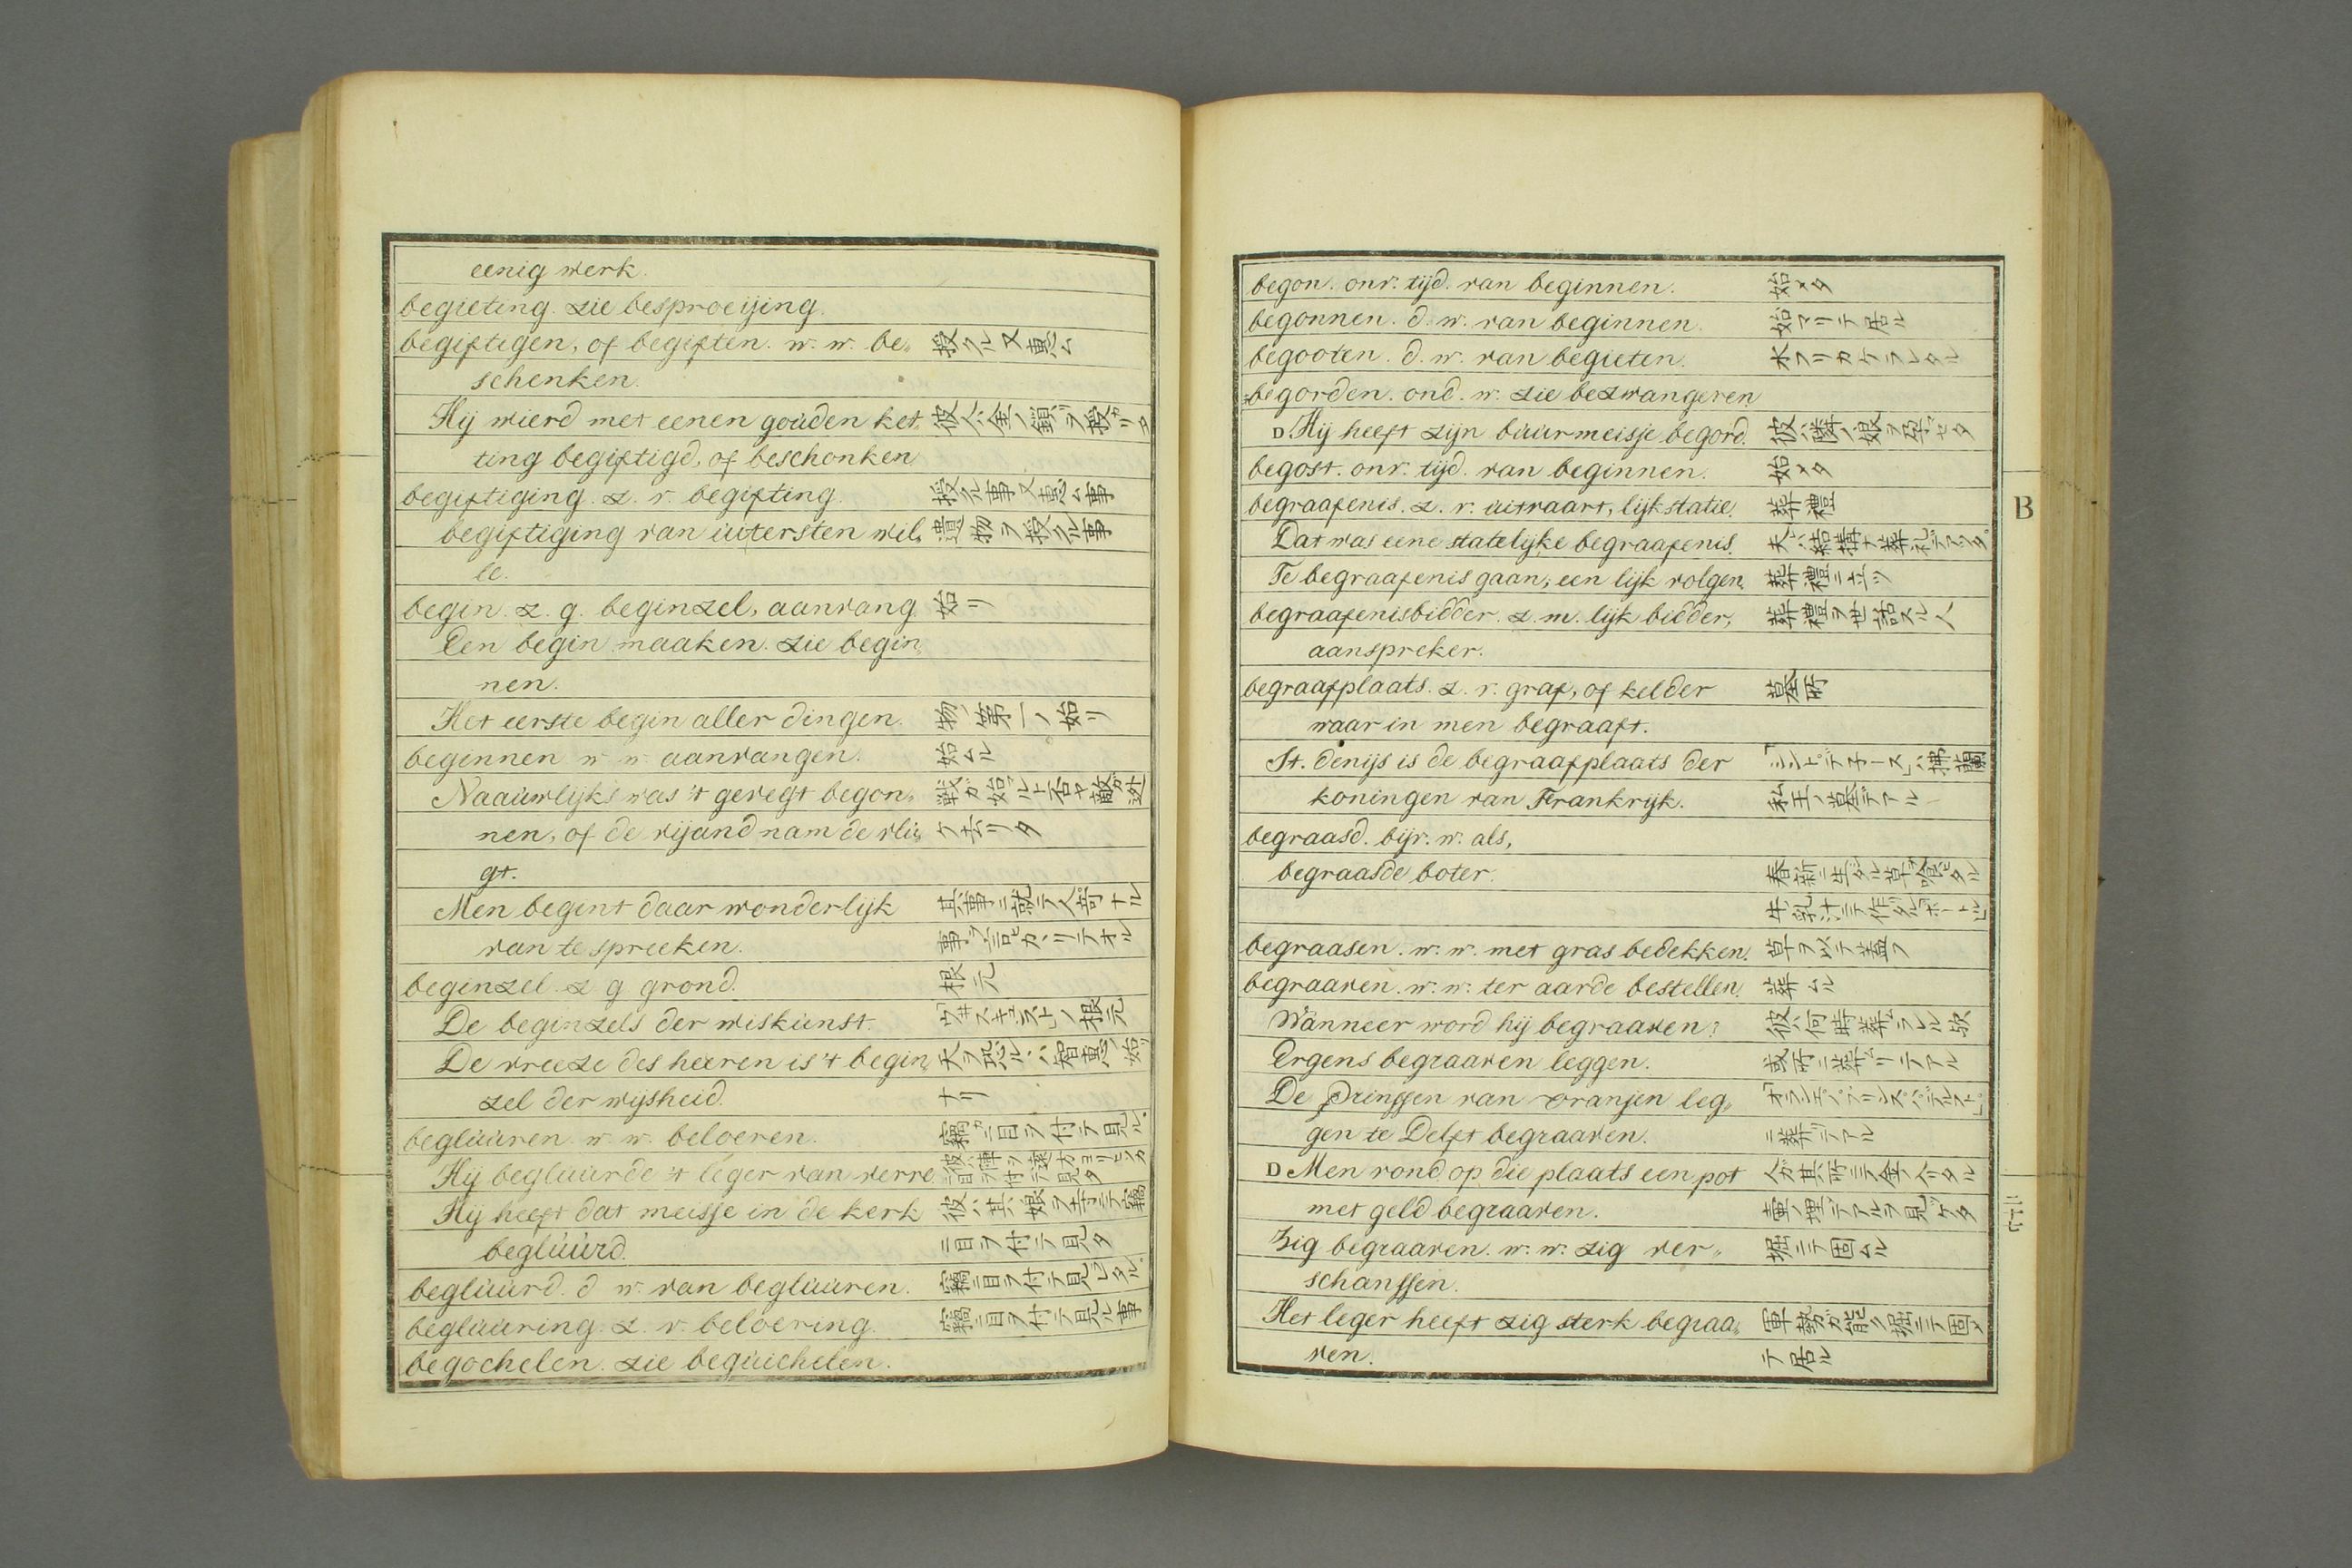 eenig werk.
begieting. zie besproeijing.
begiftigen, of begiften. w. w. be„ 授クル又惠ム
schenken.
Hij wierd met eenen goúden ket„ 彼人ハ金ノ鎖ヲ授カツタ
ting begiftigd, of beschonken
begiftiging. z. v. begifting. 授クル事又惠ム事
begiftiging van úitersten wil„ 遺物ヲ授クル事
le.
begin. z. g. beginzel, aanvang. 始リ
Een begin maaken. zie begin„
nen.
Het eerste begin aller dingen. 物ノ第一ノ始リ
beginnen w w aanvangen. 始ムル
Naaúwlijks was 't gevegt begon„ 戦ガ始ルト否ヤ敵ガ迯
nen, of de vijand nam de vlú„ ケ去ツタ
gt.
Men begint daar wonderlijk 其事ニ就テ人ガ奇ナル
van te spreeken. 事ヲ言ヒカヽリテオル
beginzel z g grond. 根元
De beginzels der wiskúnst. 「ウヰスキュンスト」ノ根元
De vreeze des heeren is 't begin„ 天ヲ恐ルヽハ智惠ノ始
zel der wijsheid. ナリ
beglúúren w. w. beloeren. 竊ニ目ヲ付テ見ル
Hij beglúúrde 't leger van verre. 彼ハ陣ヲ遠方ヨリヒソカニ目ヲ付テ見タ
Hij heeft dat meisje in de kerk 彼ハ其娘ヲ寺ニテ竊
beglúúrd. ニ目ヲ付テ見タ
beglúúrd. d w. van beglúúren. 竊ニ目ヲ付テ見ラレタル
beglúúring. z. v. beloering. 竊ニ目ヲ付テ見ル事
begochelen. zie begúichelen.
begon. onv. tijd. van beginnen. 始メタ
begonnen. d. w. van beginnen. 始マリテ居ル
begooten. d. w. van begieten. 水フリカケラレタル
begorden. ond. w. zie bezwangeren
D. Hij heeft zijn búúrmeisje begord. 彼ハ隣ノ娘ヲ孕マセタ
begost. onv. tijd. van beginnen. 始メタ
begraafenis. z. v. úitvaart, lijkstatie. 葬禮
Dat was eene statelijke begraafenis. 夫ハ結構ナ葬礼デアツタ
Te begraafenis gaan, een lijk volgen. 葬禮ニ立ツ
begraafenisbidder. z. m. lijkbidder, 葬禮ヲ世話スル人
aanspreker.
begraafplaats. z. v. graf, of kelder 墓所
waar in men begraaft.
St. denijs is de begraafplaats der 「シントデチース」ハ拂蘭
koningen van Frankrijk. 私王ノ墓デアル
begraasd. bijv. w. als,
begraasde boter. 春新ニ生タル草ヲ喰ヒタル
牛ノ乳汁ニテ作リタル「ボートル」
begraasen. w. w. met gras bedekken. 草ヲ以テ蓋フ
begraaven. w. w. ter aarde bestellen. 葬ムル
Wanneer word hij begraaven? 彼ハ何時葬ムラルヽ歟
Ergens begraaven leggen. 或所ニ葬ムリテアル
De Prinssen van oranjen leg„
gen te Delft begraaven. ニ葬テアル
D Men vond op die plaats een pot 人ガ其所ニテ金ノ入リタル
met geld begraaven. 壷ノ埋テアルヲ見ツケタ
Zig begraaven. w. w. zig ver„ 堀ニテ固ムル
schanssen.
Het leger heeft zig sterk begraa„ 軍勢ガ能ク堀ニテ固メ
ven. テ居ル
B